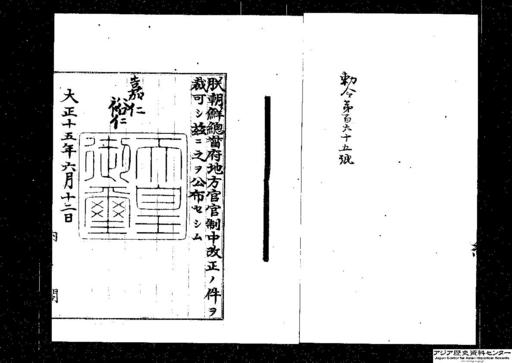 勅令第百六十五號
朕朝鮮總督府地方官官制中改正ノ件ヲ
裁可シ茲ニ之ヲ公布セシム
嘉仁
裕仁
天皇
御璽
大正十五年六月十二日
内 閣
アジア歴史資料センター
Japan Center for Asian Historical Records